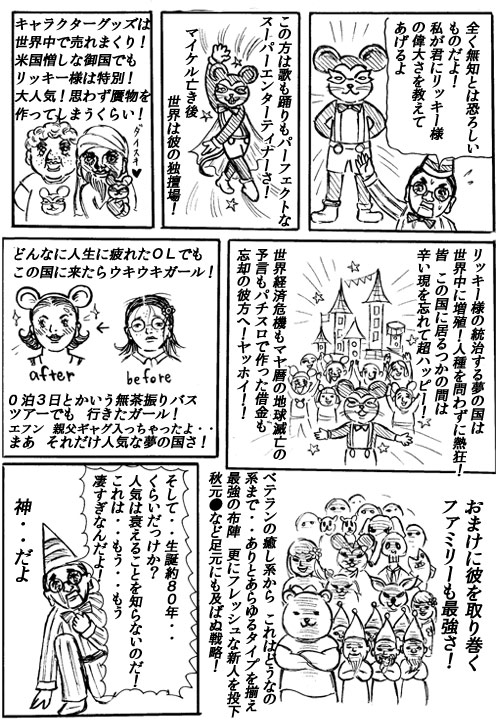 全く無知とは恐ろしい
ものだよ！
私が君にリッキー様
の偉大さを教えて
あげるよ
この方は歌も踊りもパーフェクトな
スーパーエンターティナーさ！
マイケル亡き後
世界は彼の独擅場！
キャラクターグッズは
世界中で売れまくり！
米国憎しな御国でも
リッキー様は特別！
大人気！思わず贋物を
作ってしまうくらい！
ダイスキ♥
リッキー様の統治する夢の国は
世界中に増殖！人種を問わずに熱狂！
皆 この国に居るつかの間は
辛い現を忘れて超ハッピー！
世界経済危機もマヤ暦の地球滅亡の
予言もパチスロで作った借金も
忘却の彼方へーヤッホイ！！
どんなに人生に疲れたＯＬでも
この国に来たらウキウキガール！
after
before
０泊３日とかいう無茶振りバス
ツアーでも 行きたガール！
エフン 親父ギャグ入っちゃったよ・・
まあ それだけ人気な夢の国さ！
おまけに彼を取り巻く
ファミリーも最強さ！
ベテランの癒し系から これはどうなの
系まで・・ありとあらゆるタイプを揃え
最強の布陣 更にフレッシュな新人を投下
秋元●など足元にも及ばぬ戦略！
そして・・生誕約８０年・・
くらいだっけか？
人気は衰えることを知らないのだ！
これは・・もう・・もう
凄すぎなんだよ！
神・・だよ